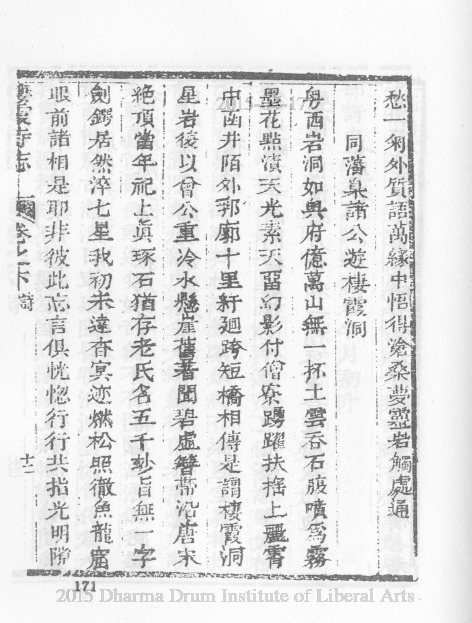 愁一匊外質語萬緣中悟得滄桑夢靈岩觸處通
同藩臬諸公遊棲霞洞
粤西岩洞如輿府億萬山無一抔土雲吞石腹噴為霧
墨花點漬天光素天留幻影付僧寮踴躍扶搖上麗霄
中函井陌外郛廓十里紆廻跨短橋相傳是謂棲霞洞
星岩後以曾公重冷水懸崖舊著聞碧虛簪帶沿唐宋
絶頂當年祀上眞琢石猶存老氏名五千妙旨無一字
劍鍔居然淬七星我初未達杳冥迹燃松照徹魚龍窟
眼前諸相是耶非彼此忘言俱恍惚行行共指光明隙
寺志
卷之下
詩
十二
171
2015 Dharma Drum Institute of Liberal Arts